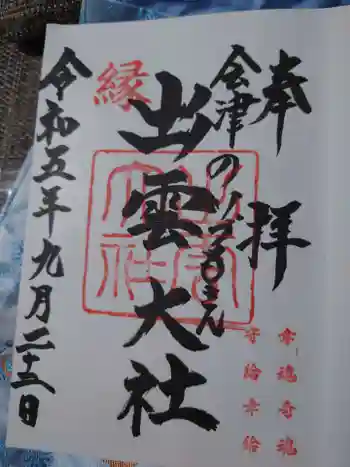 奉拝
会津のいづもさん
縁
出雲大社
令和五年九月二十二日
幸魂奇魂
守給幸給